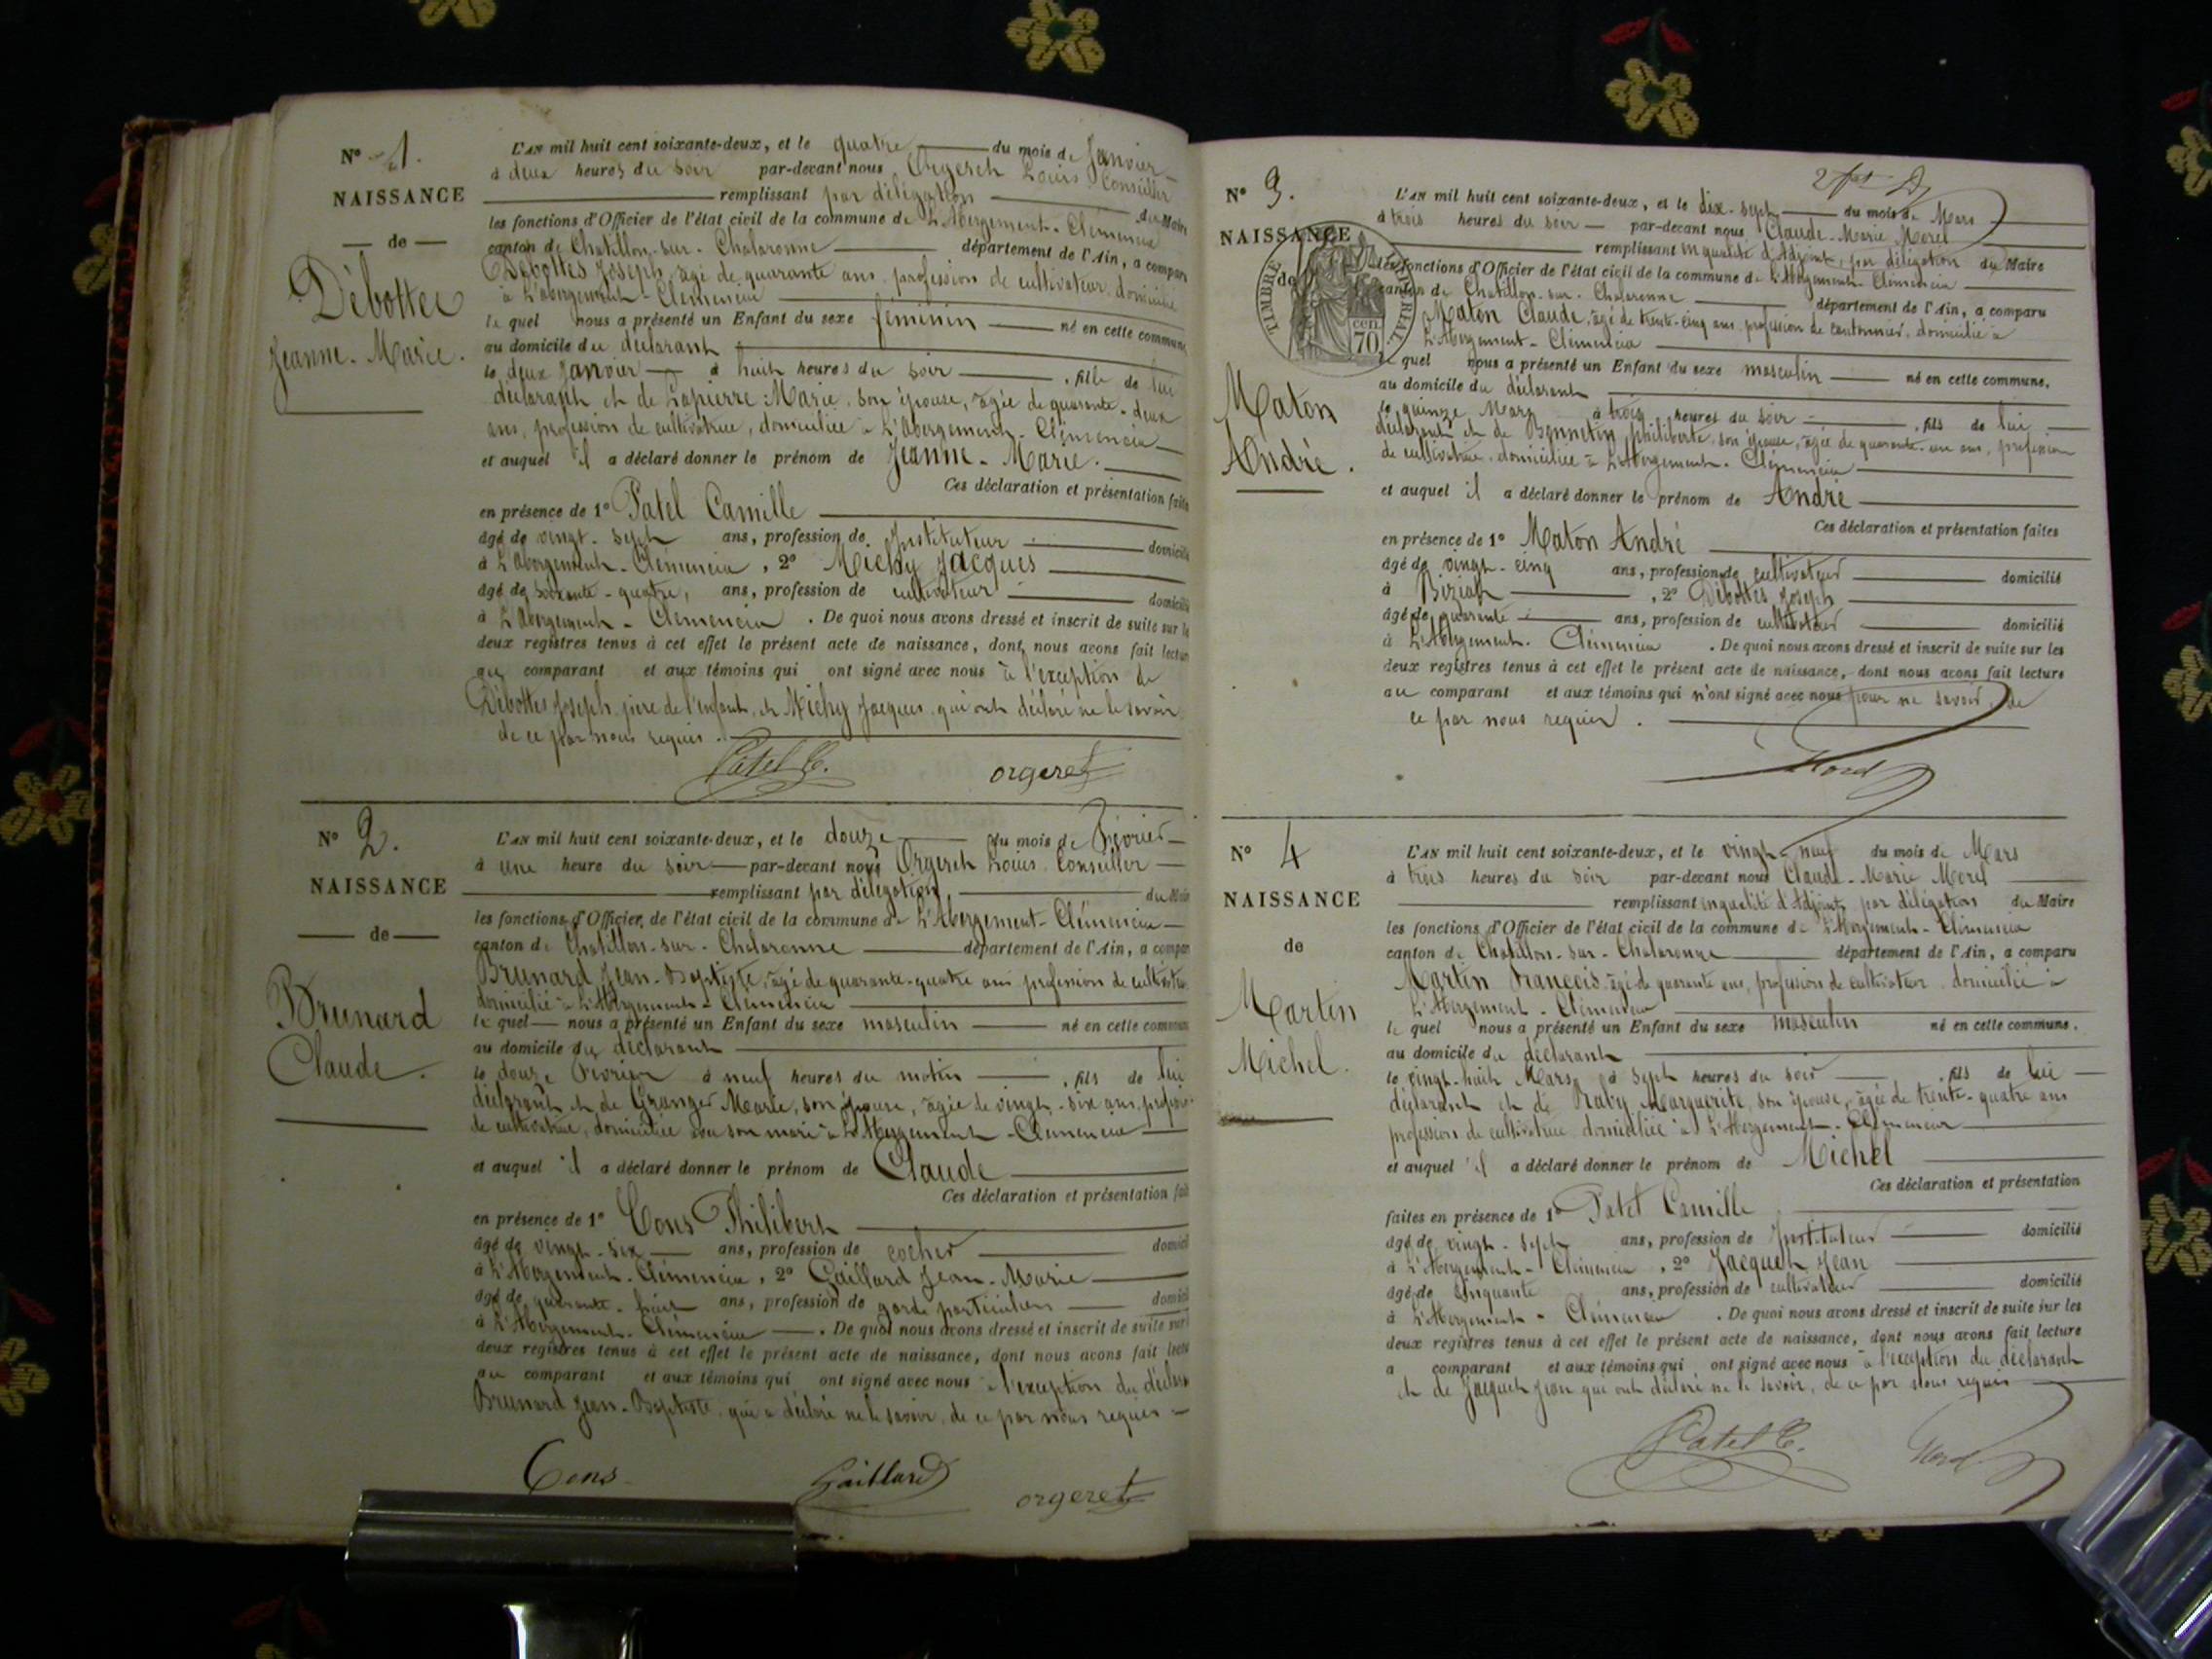 N° 1.
NAISSANCE
de
Débottes
Jeanne-Marie.
L'AN mil huit cent soixante-deux, et le quatre du mois de Janvier
à deux heures du soir par-devant nous Orgeret Louis Conseiller
remplissant par délégation du Maire
les fonctions d'Officier de l'état civil de la commune de L'Abergement-Clémencia
canton de Chatillon-sur-Chalaronne département de l'Ain, a comparu
Débottes Joseph, âgé de quarante ans, profession de cultivateur, domicilié
à L'abergement-Clémencia
le quel nous a présenté un Enfant du sexe féminin né en cette commune
au domicile du déclarant
le deux Janvier à huit heures du soir, fille de lui
déclarant et de Lapierre Marie, son épouse, âgée de quarante-deux
ans, profession de cultivatrice, domiciliée à L'Abergement-Clémencia
et auquel il a déclaré donner le prénom de Jeanne-Marie.
Ces déclaration et présentation faites
en présence de 1° Patel Camille
âgé de vingt-sept ans, profession de Instituteur domicilié
à L'Abergement-Clémencia, 2° Michy Jacques
âgé de soixante-quatre, ans, profession de cultivateur domicilié
à L'Abergement-Clémencia. De quoi nous avons dressé et inscrit de suite sur les
deux registres tenus à cet effet le présent acte de naissance, dont nous avons fait lecture
au comparant et aux témoins qui ont signé avec nous à l'exception de
Débottes Joseph, père de l'enfant, et Michy Jacques qui ont déclaré ne le savoir
de ce par nous requis.
Patel C. orgeret
N° 2.
NAISSANCE
de
Brunard
Claude.
L'AN mil huit cent soixante-deux, et le douze du mois de Février
à une heure du soir par-devant nous Orgeret Louis Conseiller
remplissant par délégation du Maire
les fonctions d'Officier de l'état civil de la commune de L'Abergement-Clémencia
canton de Chatillon-sur-Chalaronne département de l'Ain, a comparu
Brunard Jean-Baptiste, âgé de quarante-quatre ans profession de cultivateur
domicilié à L'Abergement-Clémencia
le quel nous a présenté un Enfant du sexe masculin né en cette commune
au domicile du déclarant
le douze Février à neuf heures du matin, fils de lui
déclarant et de Granger Marie, son épouse, âgée de vingt-six ans, profession
de cultivatrice, domiciliée avec son mari à L'Abergement-Clémencia
et auquel il a déclaré donner le prénom de Claude
Ces déclaration et présentation fait
en présence de 1° Cons Philibert
âgé de vingt-six ans, profession de cocher domicil
à L'Abergement-Clémencia, 2° Gaillard Jean-Marie
âgé de quarante-huit ans, profession de garde particulier domicil
à L'Abergement-Clémencia. De quoi nous avons dressé et inscrit de suite sur
deux registres tenus à cet effet le présent acte de naissance, dont nous avons fait lectu
au comparant et aux témoins qui ont signé avec nous à l'exception du déclar
Brunard Jean-Baptiste qui a déclaré ne le savoir, de ce par nous requis
Cons Gaillard orgeret
N° 3.
NAISSANCE
de
TIMBRE IMPÉRIAL
70 cen
Maton
André.
L'AN mil huit cent soixante-deux, et le dix-sept du mois de Mars
à trois heures du soir par-devant nous Claude-Marie Morel
remplissant en qualité d'Adjoint, par délégation du Maire
les fonctions d'Officier de l'état civil de la commune de L'Abergement-Clémencia
canton de Chatillon-sur-Chalaronne département de l'Ain, a comparu
Maton Claude, âgé de trente-cinq ans, profession de cantonnier, domicilié à
L'Abergement-Clémencia
le quel nous a présenté un Enfant du sexe masculin né en cette commune.
au domicile du déclarant
le quinze Mars à trois heures du soir, fils de lui
déclarant et de Bonnetin Philiberte, son épouse, âgée de quarante-un ans, profession
de cultivatrice, domiciliée à L'Abergement-Clémencia
et auquel il a déclaré donner le prénom de André
Ces déclaration et présentation faites
en présence de 1° Maton André
âgé de vingt-cinq ans, profession de cultivateur domicilié
à Biziat, 2° Débottes Joseph
âgé de quarante ans, profession de cultivateur domicilié
à L'Abergement-Clémencia. De quoi nous avons dressé et inscrit de suite sur les
deux registres tenus à cet effet le présent acte de naissance, dont nous avons fait lecture
au comparant et aux témoins qui n'ont signé avec nous pour ne savoir, de
ce par nous requis.
Morel
N° 4
NAISSANCE
de
Martin
Michel.
L'AN mil huit cent soixante-deux, et le vingt-neuf du mois de Mars
à trois heures du soir par-devant nous Claude-Marie Morel
remplissant en qualité d'Adjoint, par délégation du Maire
les fonctions d'Officier de l'état civil de la commune de L'Abergement-Clémencia
canton de Chatillon-sur-Chalaronne département de l'Ain, a comparu
Martin François, âgé de quarante ans, profession de cultivateur, domicilié à
L'Abergement-Clémencia
le quel nous a présenté un Enfant du sexe masculin né en cette commune.
au domicile du déclarant
le vingt-huit Mars, à sept heures du soir, fils de lui
déclarant et de Raby Marguerite, son épouse, âgée de trente-quatre ans
profession de cultivatrice domiciliée à L'Abergement-Clémencia
et auquel il a déclaré donner le prénom de Michel
Ces déclaration et présentation
faites en présence de 1° Patel Camille
âgé de vingt-sept ans, profession de Instituteur domicilié
à L'Abergement-Clémencia, 2° Jacquet Jean
âgé de cinquante ans, profession de cultivateur domicilié
à L'Abergement-Clémencia. De quoi nous avons dressé et inscrit de suite sur les
deux registres tenus à cet effet le présent acte de naissance, dont nous avons fait lecture
a comparant et aux témoins qui ont signé avec nous à l'exception du déclarant
et de Jacquet Jean qui ont déclaré ne le savoir, de ce par nous requis
Patel C. Morel